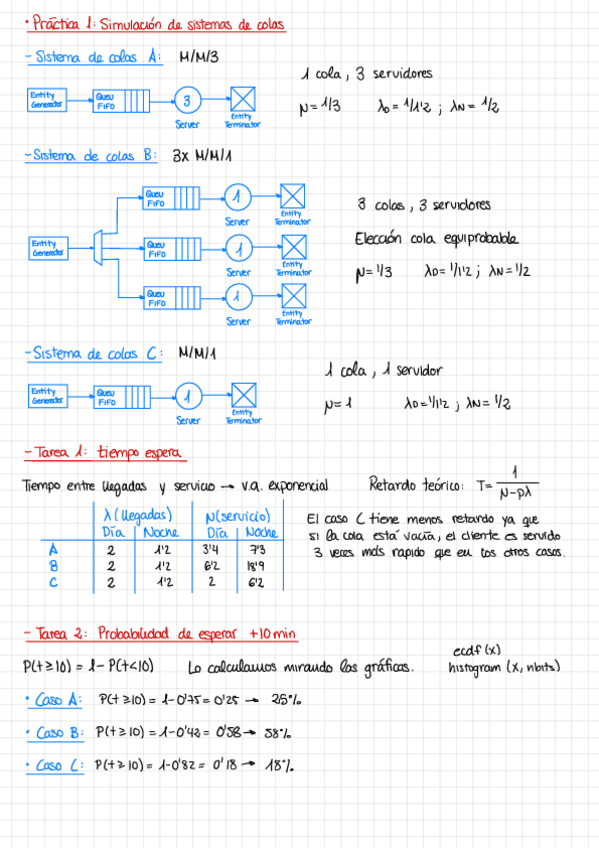 • Práctica 1: Simulación de sistemas de colas
- Sistema de colas A: M/M/3
1 cola, 3 servidores
Entity Generador
Queu FIFO
3
Server
Entity Terminator
µ = 1/3 λD = 1/1'2 ; λN = 1/2
- Sistema de colas B: 3x M/M/1
Queu FIFO
1
Server
Entity Terminator
3 colas, 3 servidores
Entity Generador
Queu FIFO
1
Server
Entity Terminator
Elección cola equiprobable
µ = 1/3 λD = 1/1'2 ; λN = 1/2
Queu FIFO
1
Server
Entity Terminator
- Sistema de colas C: M/M/1
1 cola, 1 servidor
Entity Generador
Queu FIFO
1
Server
Entity Terminator
µ = 1 λD = 1/1'2 ; λN = 1/2
- Tarea 1: tiempo espera
Tiempo entre llegadas y servicio → v.a. exponencial Retardo teórico: T = 1/(µ-pλ)
λ (llegadas) µ (servicio)
Día Noche Día Noche
A 2 1'2 3'4 7'3
B 2 1'2 6'2 18'9
C 2 1'2 2 6'2
El caso C tiene menos retardo ya que
si la cola está vacía, el cliente es servido
3 veces más rapido que en los otros casos.
- Tarea 2: Probabilidad de esperar +10 min
P(t ≥ 10) = 1 - P(t < 10) Lo calculamos mirando las gráficas.
ecdf (x)
histogram (x, nbits)
• Caso A: P(t ≥ 10) = 1 - 0'75 = 0'25 → 25%
• Caso B: P(t ≥ 10) = 1 - 0'42 = 0'58 → 58%
• Caso C: P(t ≥ 10) = 1 - 0'82 = 0'18 → 18%